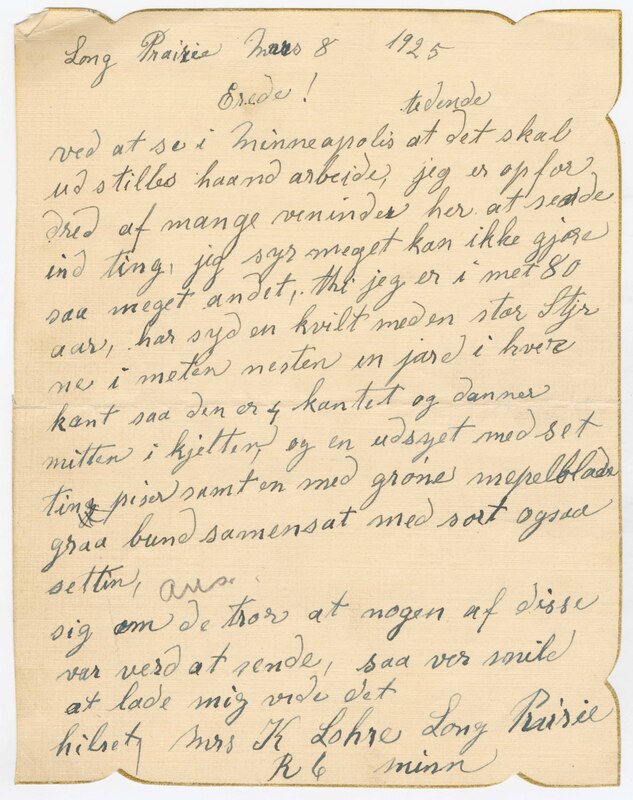 Long Prairie Mars 8 1925
Erede!
tidende
ved at se i Minneapolis at det skal
udstilles haand arbeide, jeg er opfor
dred af mange veninder her at sende
ind ting, jeg syr meget kan ikke gjøre
saa meget andet, thi jeg er i met 80
aar, har syd en kvilt med en stor Stjr
ne i meten nesten en jard i hver
kant saa den er 4 kantet og danner
mitten i kjelten, og en udsyet med set
ting piser samt en med grøne mepelblade
graa bund samensat med sort ogsaa
settin, ans.
sig om de tror at nogen af disse
var verd at sende, saa ver snild
at lade mig vide det
hilset, Mrs K Lohre Long Prairie
R 6 minn